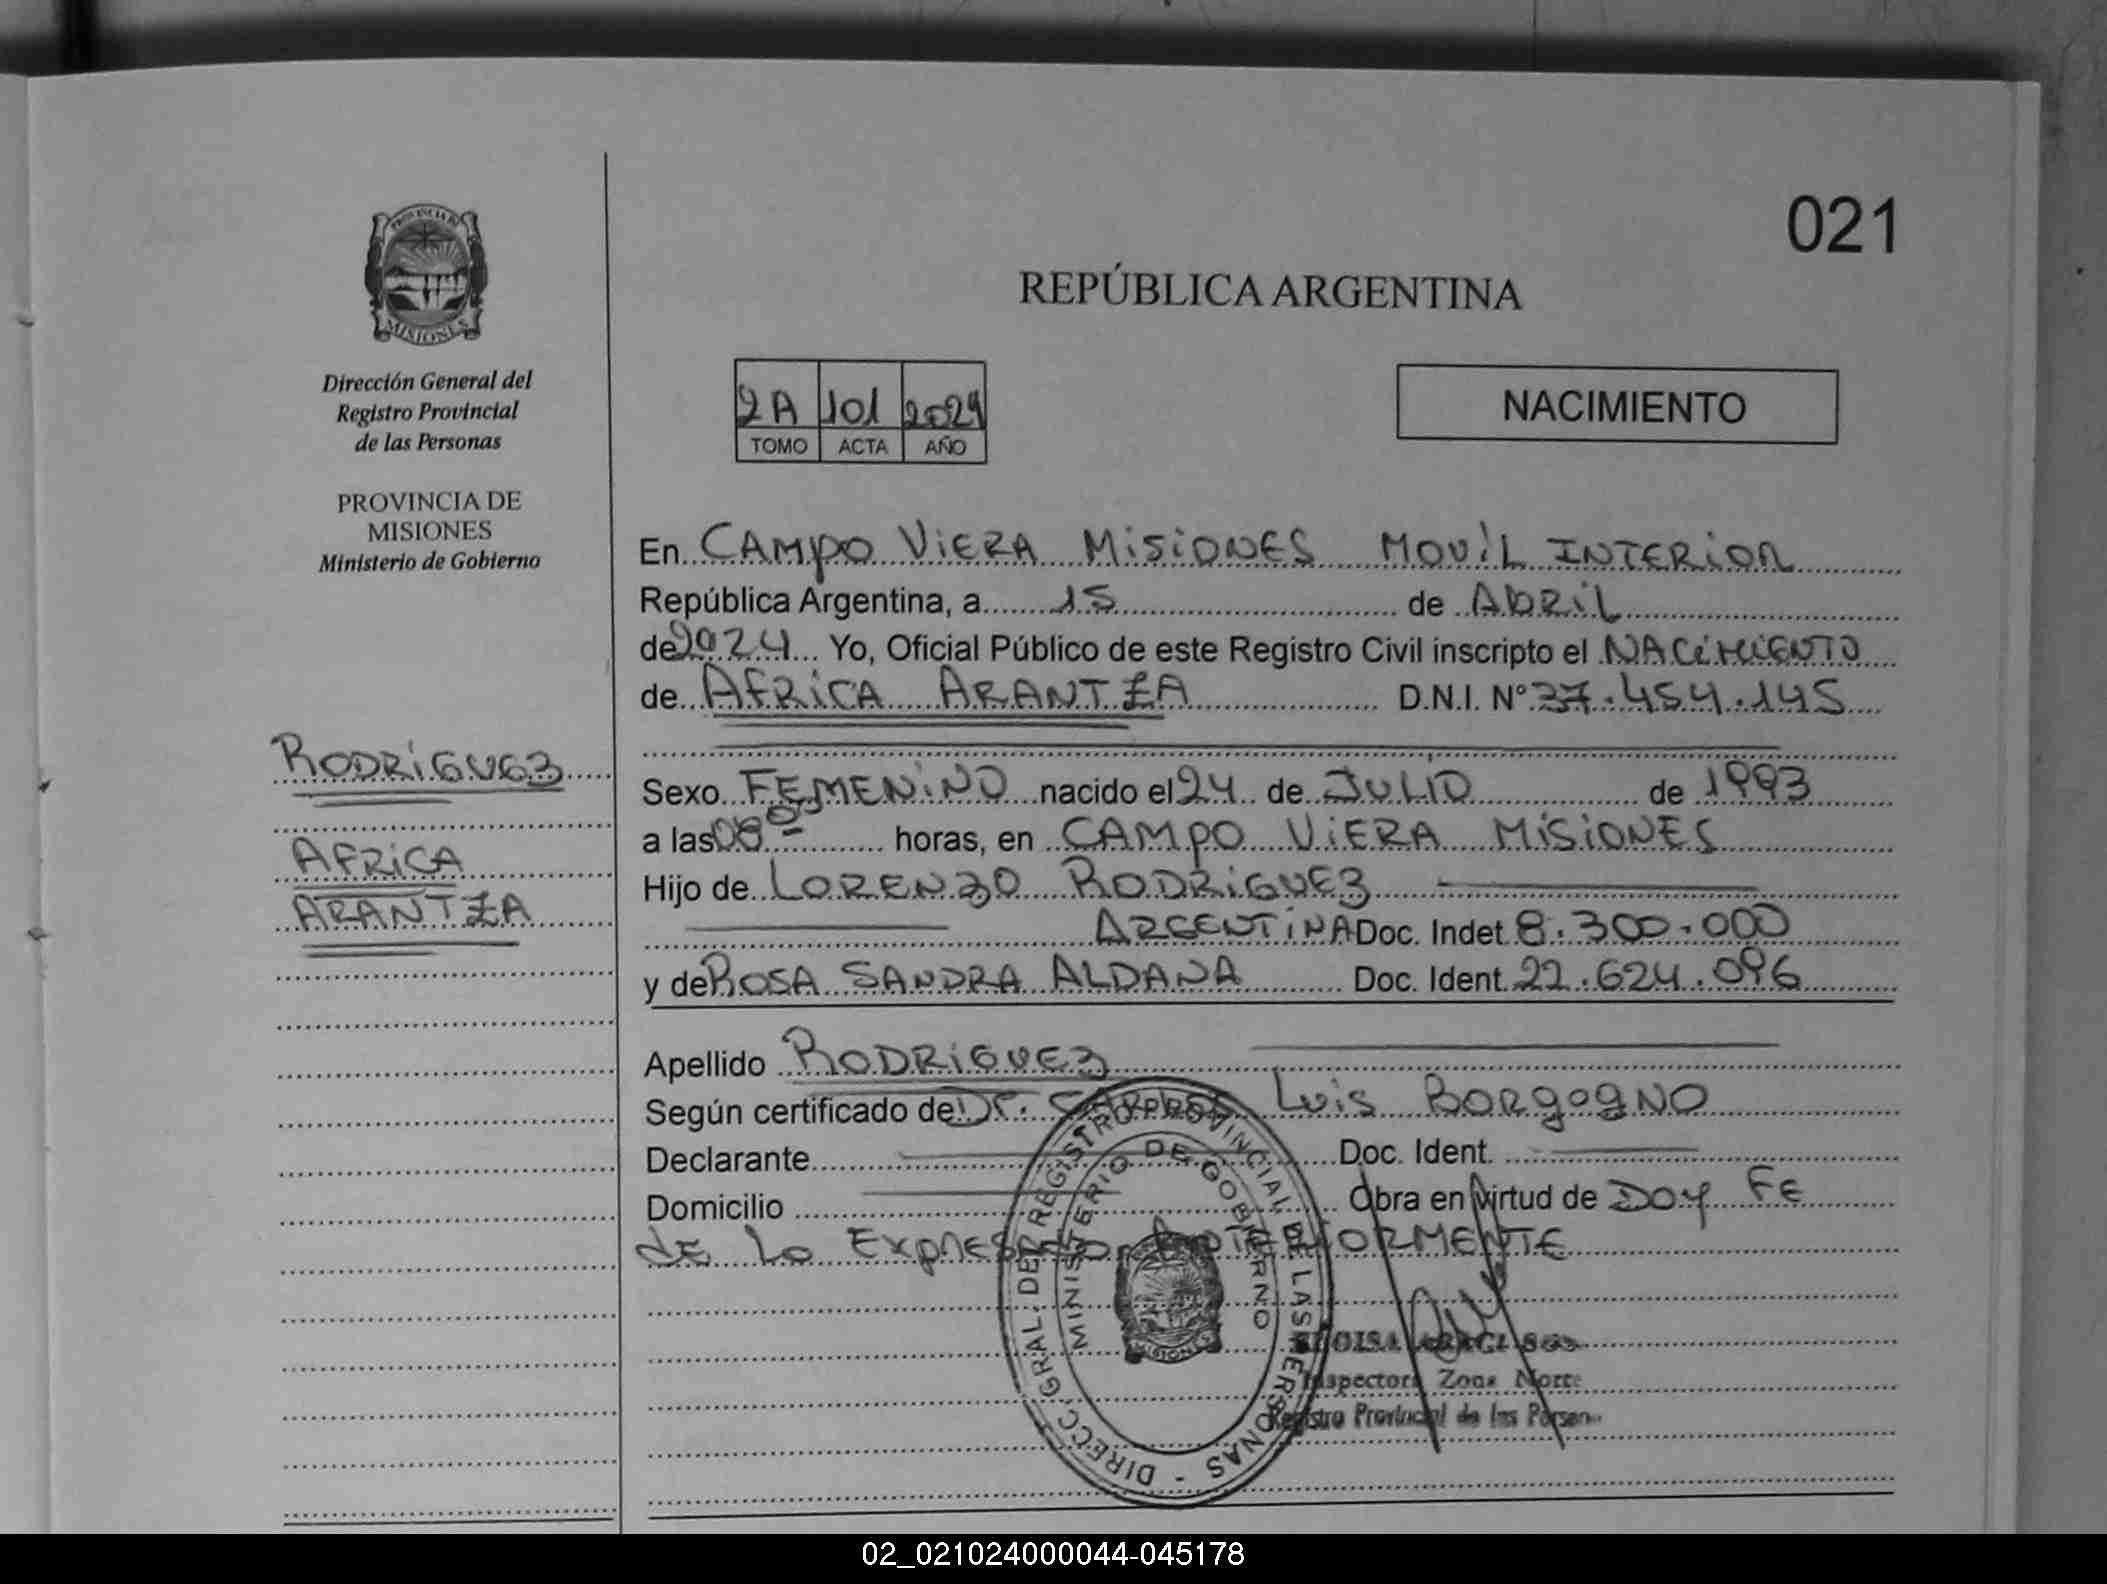 021
PROVINCIA DE
MISIONES
Dirección General del
Registro Provincial
de las Personas
PROVINCIA DE
MISIONES
Ministerio de Gobierno
RODRÍGUEZ
AFRICA
ARANTZA
REPÚBLICA ARGENTINA
2A 101 2024
TOMO ACTA AÑO
NACIMIENTO
En CAMPO ViERA MiSiONES MOViL INTERiOR
República Argentina, a 15 de Abril
de 2024 Yo, Oficial Público de este Registro Civil inscripto el NACiMiENTO
de AFRiCA ARANTZA D.N.I. N° 37.454.145
Sexo FEMENiNO nacido el 24 de JULIO de 1993
a las 08 00 horas, en CAMPO ViERA MiSiONES
Hijo de LORENZO RODRiGUEZ
ARGENTiNA Doc. Indet 8.300.000
y de ROSA SANDRA ALDANA Doc. Ident. 22.624.096
Apellido RODRiGUEZ
Según certificado de Dr. CARLOS Luis BORgOgNO
Declarante Doc. Ident.
Domicilio Obra en virtud de DOY FE
de Lo EXPRESADO ANTERIORMENTE
DIRECC. GRAL. DEL REGISTRO PROVINCIAL DE LAS PERSONAS -
MINISTERIO DE GOBIERNO
MISIONES
Inspectora Zona Norte
Registro Provincial de las Person
02_021024000044-045178